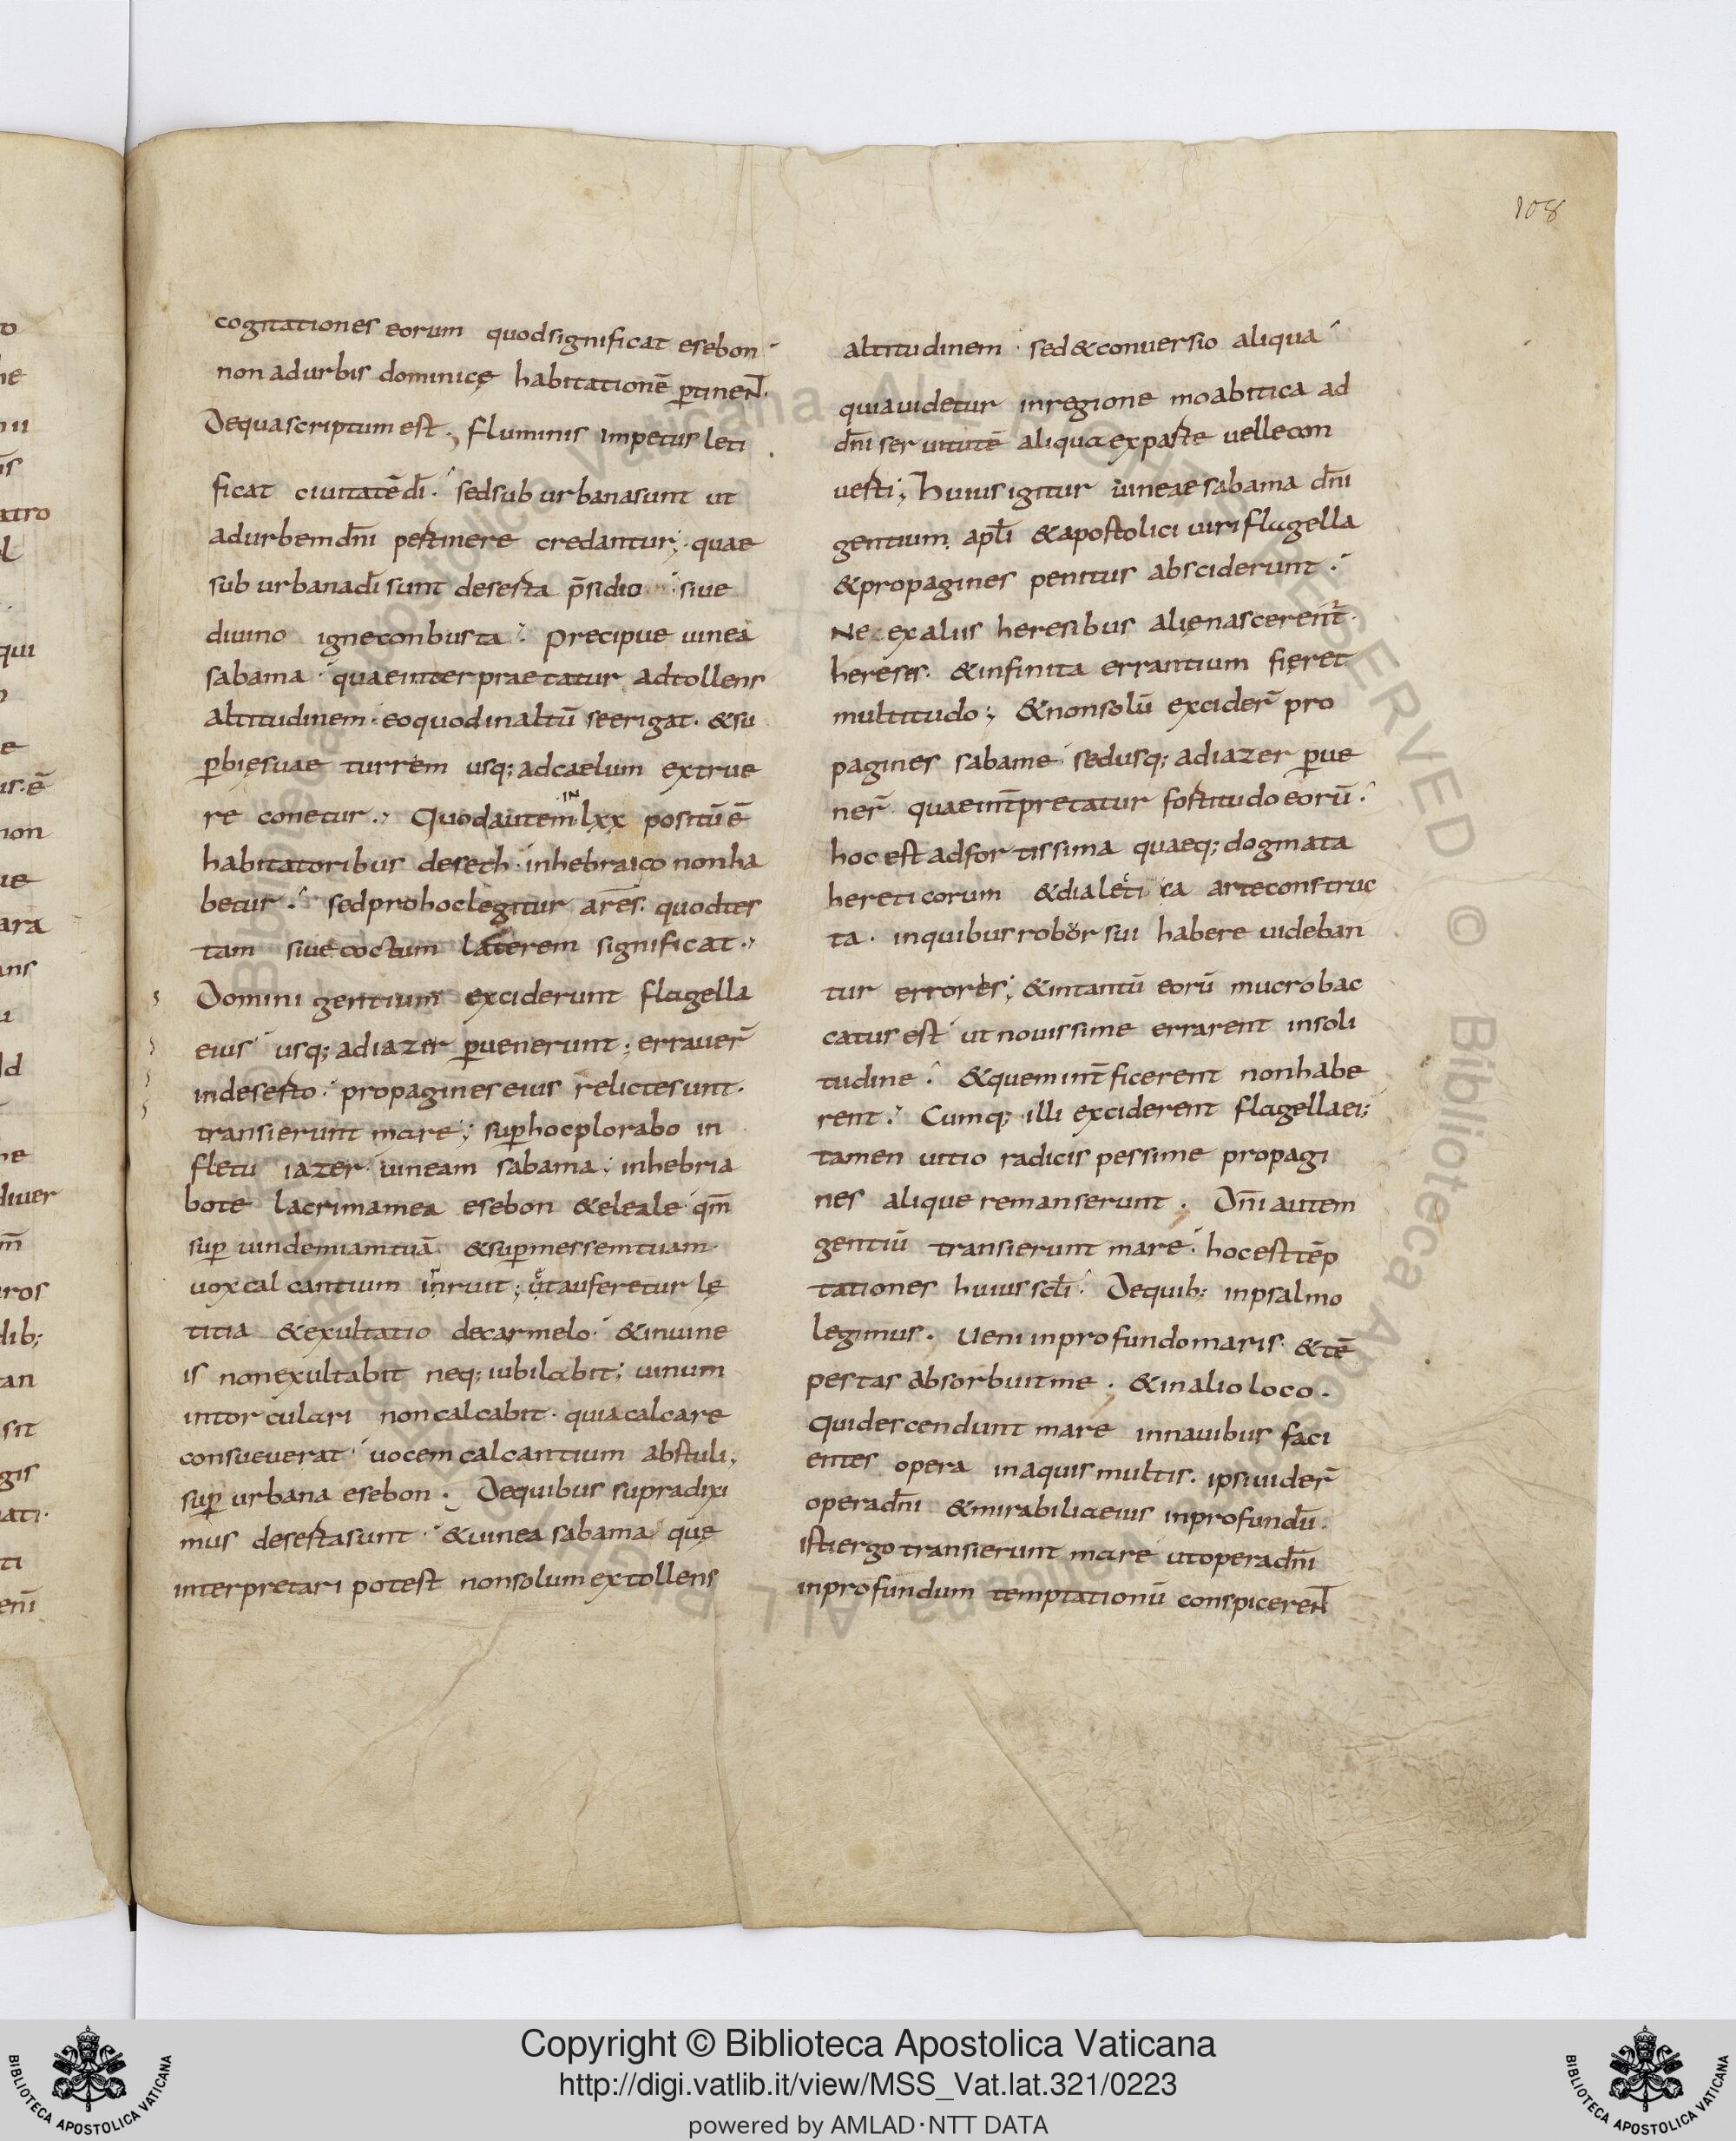 108
cogitationes eorum quodsignificat esebon
non adurbis dominicę habitationē ꝑtinent.
Dequascriptum est; fluminis impetus leti
ficat ciuitatē dī. sedsuburbanasunt ut
adurbemdn̄i pertinere credantur; quae
suburbanadī sunt deserta p̄sidio siue
diuino igneconbusta. Precipue uinea
sabama quaeinterpraetatur adtollens
altitudinem. eoquodinaltū seerigat. &su
ꝑbięsuae turrem usq; adcaelum extrue
re conetur. Quodautem IN lxx positū ē
habitatoribus deseth. inhebraico nonha
betur. sedprohoclegitur ares. quodtes
tam siue coctum laterem significat.
Domini gentium exciderunt flagella
eius usq; adiazer ꝑuenerunt; errauer̄
indeserto. propagines eius relictesunt.
transierunt mare; suꝑhocplorabo in
fletu iazer uineam sabama; inhebria
bote lacrimamea esebon &eleale qm̄
suꝑ uindemiamtuā &suꝑmessemtuam
uoxcalcantium inruit; &auferetur lę
titia &exultatio decarmelo. &inuine
is nonexultabit neq; iubilabit; uinum
intorculari noncalcabit. quiacalcare
consueuerat uocem calcantium abstuli;
suꝑ urbana esebon. Dequibus supradixi
mus desertasunt &uinea sabama quę
interpretari potest nonsolum extollens
altitudinem. sed&conuersio aliqua
quiauidetur inregione moabitica ad
dn̄i seruitutē aliqua exparte uellecon
uerti; huiusigitur uineaesabama dn̄i
gentium apl̄i &apostolici uiri flagella
&propagines penitus absciderunt.
Ne exaliis heresibus alięnascerent
hereses. &infinita errantium fięret
multitudo; &nonsolū excider̄ pro
pagines sabame sedusq; adiazer ꝑue
ner̄ quaeint̄pretatur fortitudo eorū.
hoc est adfortissima quaeq; dogmata
hereticorum &dialetica arteconstruc
ta. inquibusrobor sui habere uideban
tur errores; &intantū eorū mucrobac
catus est ut nouissime errarent insoli
tudine. &quemint̄ficerent nonhabe
rent. Cumq; illi exciderent flagellaei;
tamen uitio radicis pessime propagi
nes alique remanserunt. Dn̄i autem
gentiū transierunt mare. hoc est tēp
tationes huius scl̄i. Dequib; inpsalmo
legimus. Ueni inprofundomaris &tē
pestas absorbuitme. &inalio loco.
Quidescendunt mare innauibus faci
entes opera inaquismultis. ipsiuider̄
operadn̄i &mirabiliaeius inprofundū.
istiergo transierunt mare utoperadn̄i
inprofundum temptationū conspicerent
Copyright © Biblioteca Apostolica Vaticana
http://digi.vatlib.it/view/MSS_Vat.lat.321/0223
powered by AMLAD·NTT DATA